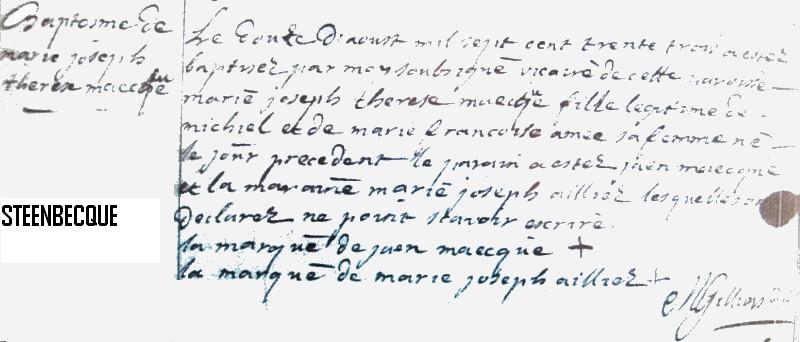 Baptosme de
marie joseph
therese maecque
Le douze D'aoust mil sept cent trente trois a estez
baptisez par moy soubsigné vicaire de cette paroisse
marie joseph therese maecque fille legitime de
michiel et de marie francoise amee sa femme né
le jour precedent le parain a estez jaen maecque
et la maraine marie joseph ailliez lesquelles ont
Declarez ne point scavoir escrire.
la marque de jaen maecque +
la marque de marie joseph ailliez +
STEENBECQUE